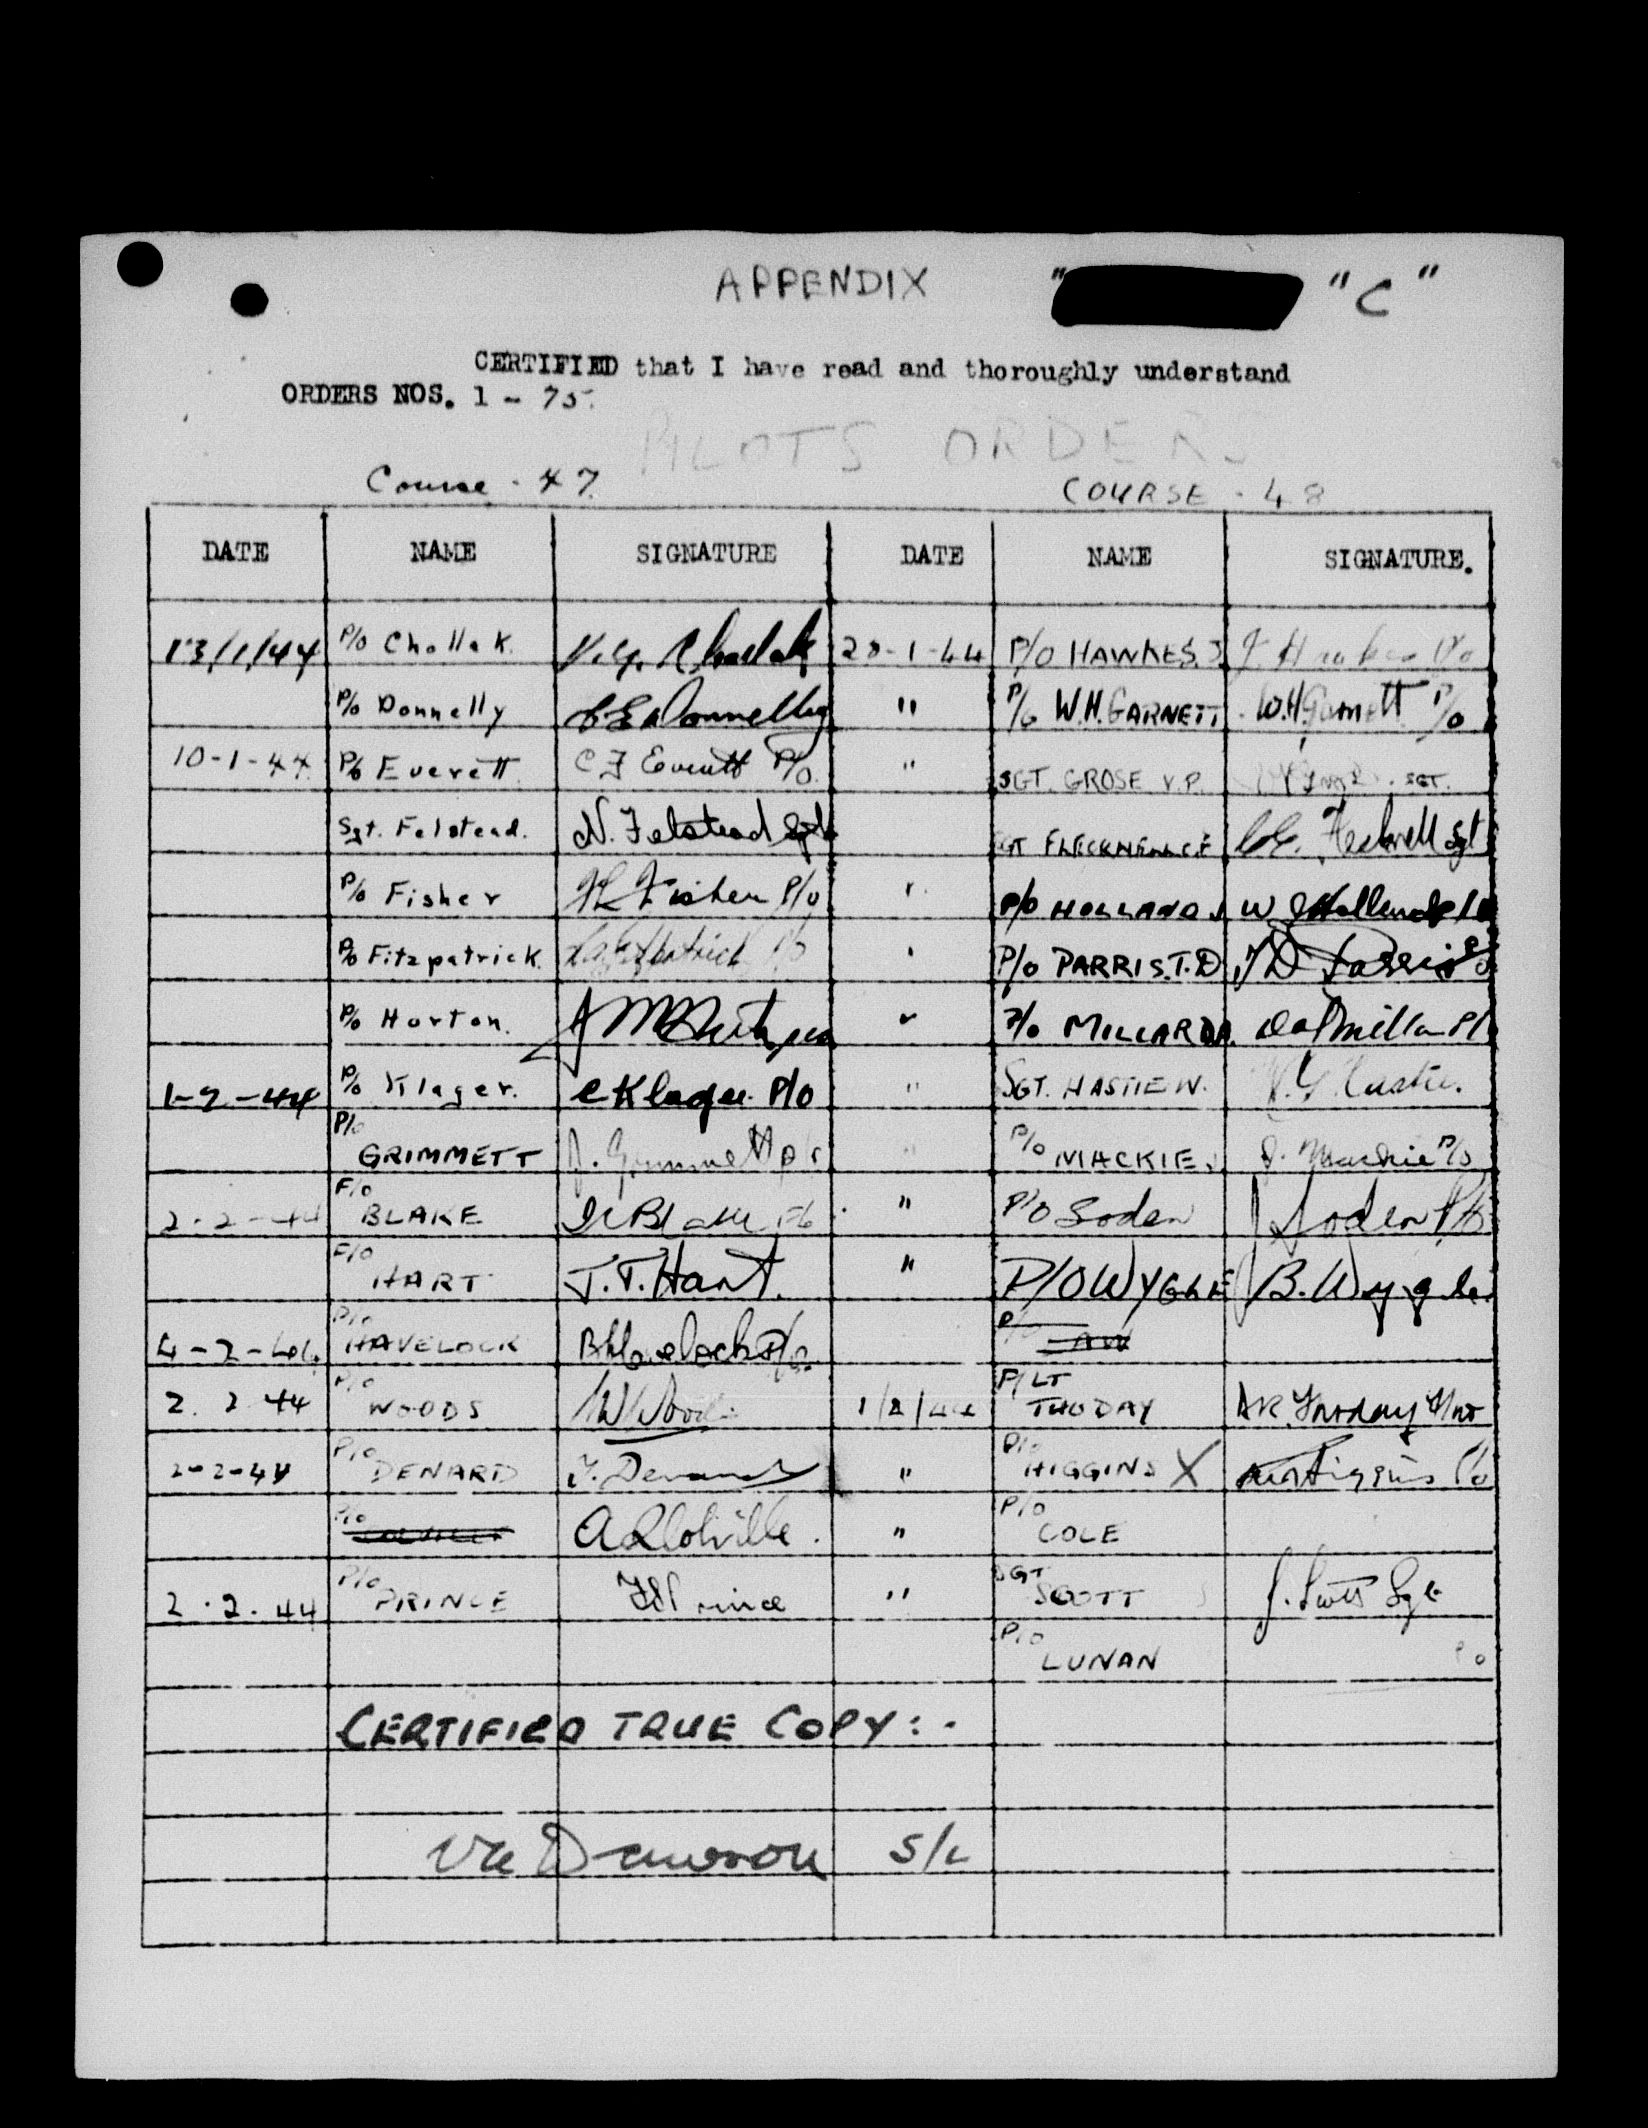 APPENDIX " "C"
CERTIFIED that I have read and thoroughly understand
ORDERS NOS. 1 - 75.
PILOTS ORDERS
Course - 47. COURSE - 48
DATE NAME SIGNATURE DATE NAME SIGNATURE.
13/1/44 P/O Chollak. 28-1-44 P/O HAWKES. J.
P/O Donnelly Donnelly " P/O W.H. GARNETT. W.H. Garnett P/O
10-1-44 P/O Everett. C F Everett P/O. " SGT. GROSE V.P. SGT.
Sgt. Felstead. N. Felstead Sgt SGT Sgt
P/O Fisher Fisher P/O " P/O HOLLAND J W J Holland P/O
P/O Fitzpatrick. Fitzpatrick P/O " P/O PARRIS. T.D. T D Parris
P/O Horton. " P/O MILLARD
1-2-44 P/O Klager. C Klager P/O " SGT. HASTIE W.
P/O GRIMMETT J. Grimmett P/O " P/O MACKIE J. J. Mackie P/O
2-2-44 F/O BLAKE Blake F/O " P/O Soden J Soden P/O
F/O HART J.T. Hart. " P/O WYGLE B. Wygle
4-2-44 P/O HAVELOCK Havelock P/O P/O
2.2.44 P/O WOODS Woods 1/2/44 F/LT THODAY Thoday
2-2-44 P/O DENARD Denard " P/O HIGGINS X Higgins P/O
P/O Colville. " P/O COLE
2.2.44 P/O PRINCE Prince " SGT SCOTT J. Scott Sgt
P/O LUNAN P/O
CERTIFIED TRUE COPY:-
S/L